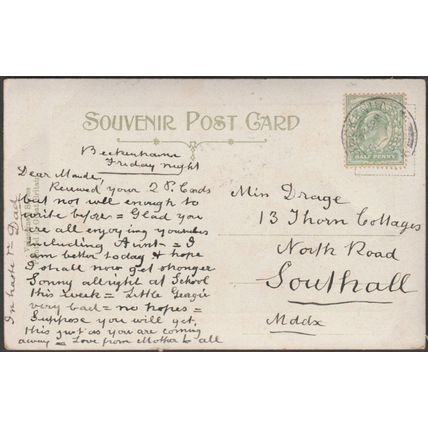 SOUVENIR POST CARD
HALF PENNY
Beckenham
Friday night
Dear Maude,
Received your 2 P. Cards
but not well enough to
write before = Glad you
are all enjoying yourselves
including Aunt = I
am better today & hope
I shall now get stronger
Sonny allright at School
this week = Little Georgie
very bad = no hopes =
Suppose you will get,
this just as you are coming
away = Love from Mother to all
In haste Dad
Miss Drage
13 Thorn Cottages
North Road
Southall
Mddx